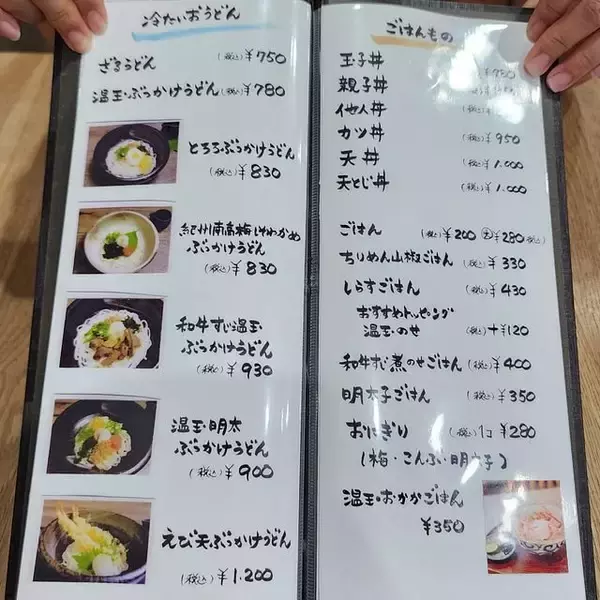 冷たいおうどん
ざるうどん (税込)¥750
温玉・ぶっかけうどん (税込)¥780
とろろぶっかけうどん
(税込)¥830
紀州南高梅しそわかめ
ぶっかけうどん
(税込)¥830
和牛すじ温玉・
ぶっかけうどん
(税込)¥930
温玉・明太
ぶっかけうどん
(税込)¥900
えび天ぶっかけうどん
(税込)¥1.200
ごはんもの
玉子丼
親子丼
他人丼
カツ丼 (税込)¥950
天丼 (税込)¥1.000
天とじ丼 (税込)¥1.000
ごはん (税込)¥200 大¥280(税込)
ちりめん山椒ごはん (税込)¥330
しらすごはん (税込)¥430
おすすめトッピング
温玉のせ (税込)+¥120
和牛すじ煮のせごはん (税込)¥400
明太子ごはん (税込)¥350
おにぎり (税込)1コ ¥280
(梅・こんぶ・明太子)
温玉・おかかごはん
¥350